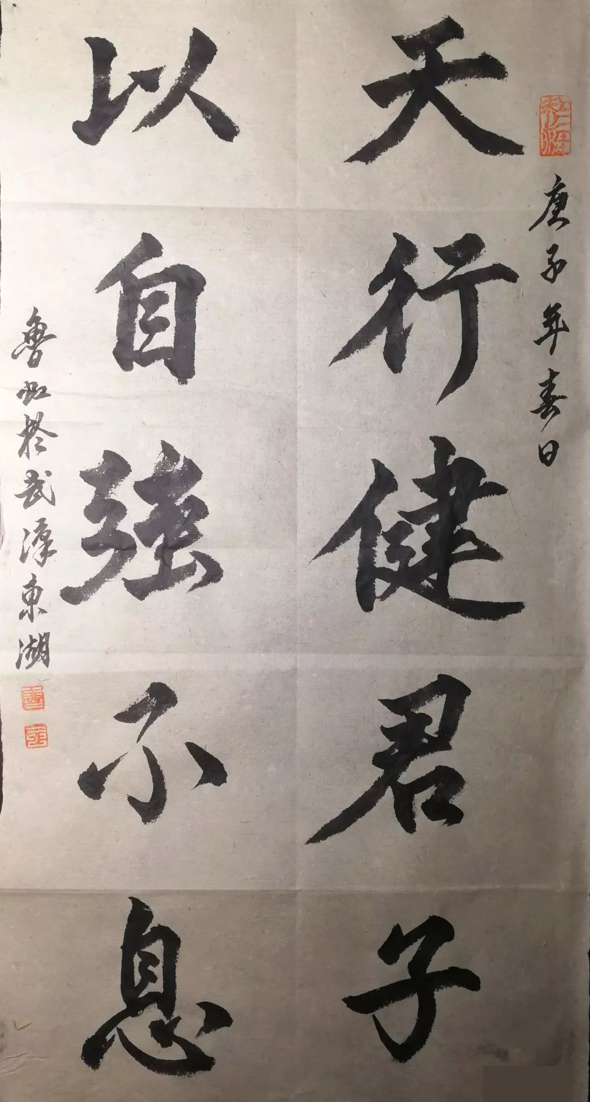 庚子年春日
天行健君子
以自強不息
魯虹於武漢東湖